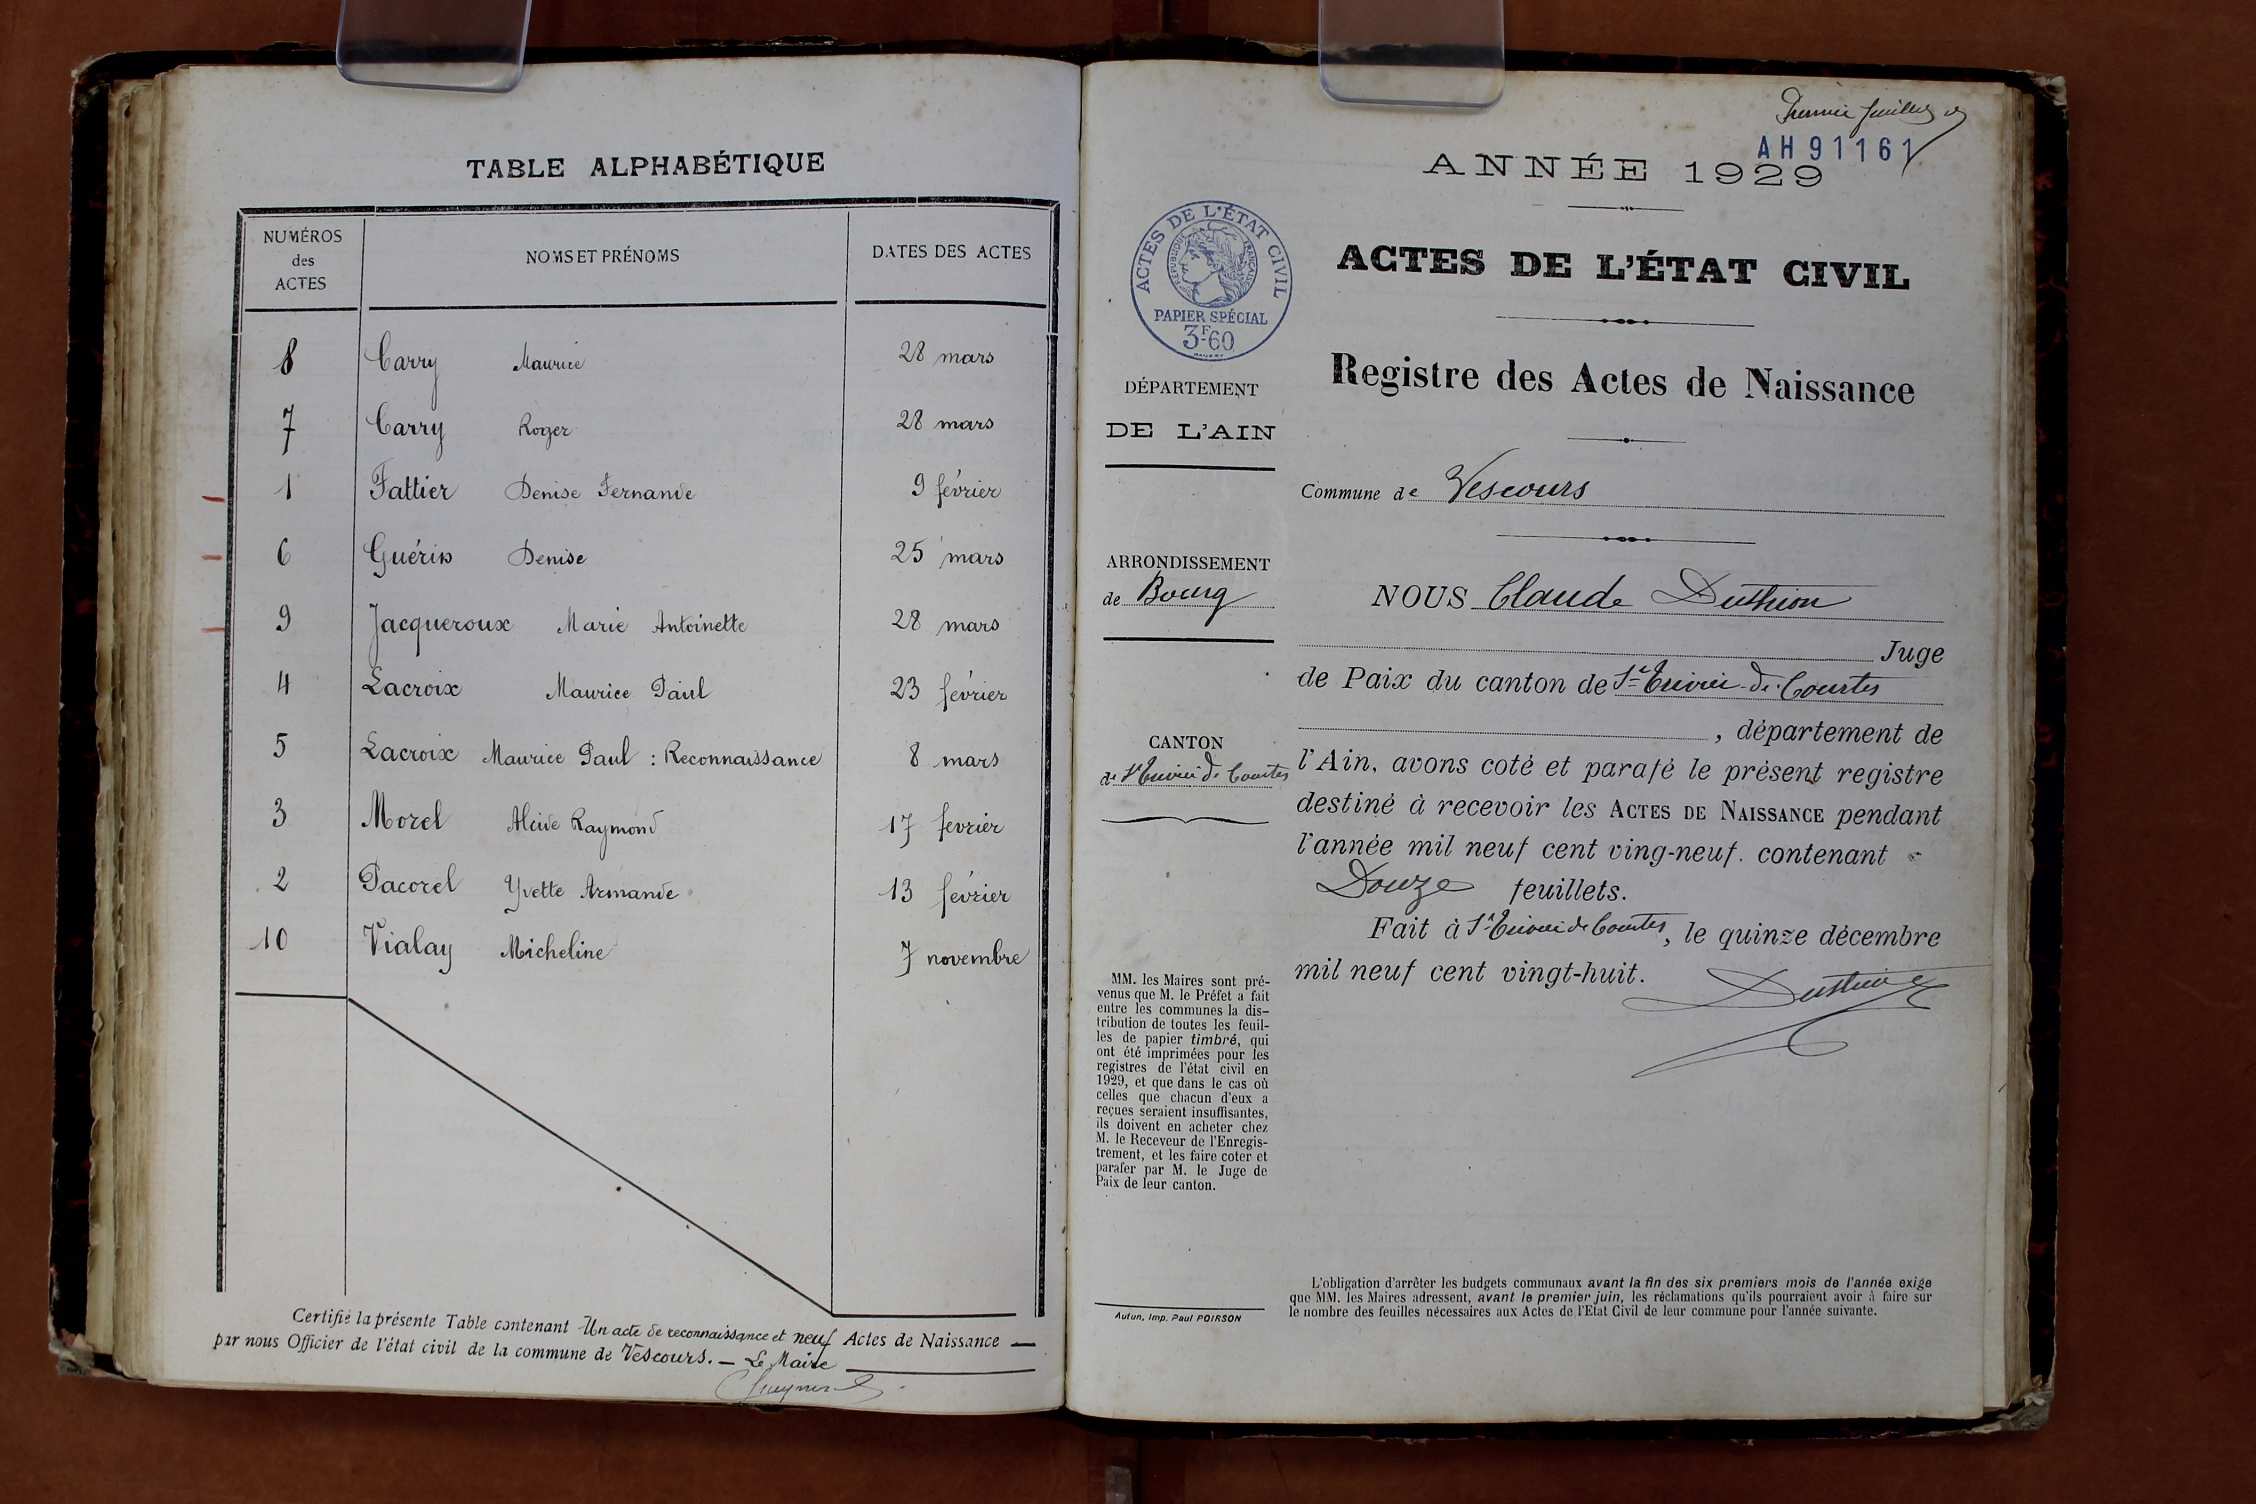 TABLE ALPHABÉTIQUE
NUMÉROS des ACTES NOMS ET PRÉNOMS DATES DES ACTES
8 Carry Maurice 28 mars
7 Carry Roger 28 mars
1 Fattier Denise Fernande 9 février
6 Guérin Denise 25 mars
9 Jacqueroux Marie Antoinette 28 mars
4 Lacroix Maurice Paul 23 février
5 Lacroix Maurice Paul : Reconnaissance 8 mars
3 Morel Alcide Raymond 17 fevrier
2 Pacorel Yvette Armande 13 février
10 Vialay Micheline 7 novembre
Certifié la présente Table contenant Un acte de reconnaissance et neuf Actes de Naissance
par nous Officier de l'état civil de la commune de Vescours. — Le Maire
AH91161
ANNÉE 1929
ACTES DE L'ÉTAT CIVIL
RÉPUBLIQUE FRANÇAISE
PAPIER SPÉCIAL
3F60
ACTES DE L'ÉTAT CIVIL
Registre des Actes de Naissance
DÉPARTEMENT
DE L'AIN
Commune de Vescours
ARRONDISSEMENT
de Bourg
CANTON
de St Trivier de Courtes
NOUS Claude Duthion
Juge
de Paix du canton de St Trivier-de-Courtes
, département de
l'Ain, avons coté et parafé le présent registre
destiné à recevoir les ACTES DE NAISSANCE pendant
l'année mil neuf cent ving-neuf. contenant
Douze feuillets.
Fait à St Trivier de Courtes, le quinze décembre
mil neuf cent vingt-huit.
Duthion
MM. les Maires sont pré-
venus que M. le Préfet a fait
entre les communes la dis-
tribution de toutes les feuil-
les de papier timbré, qui
ont été imprimées pour les
registres de l'état civil en
1929, et que dans le cas où
celles que chacun d'eux a
reçues seraient insuffisantes,
ils doivent en acheter chez
M. le Receveur de l'Enregis-
trement, et les faire coter et
parafer par M. le Juge de
Paix de leur canton.
Autun, Imp. Paul POIRSON
L'obligation d'arrêter les budgets communaux avant la fin des six premiers mois de l'année exige
que MM. les Maires adressent, avant le premier juin, les réclamations qu'ils pourraient avoir à faire sur
le nombre des feuilles nécessaires aux Actes de l'Etat Civil de leur commune pour l'année suivante.